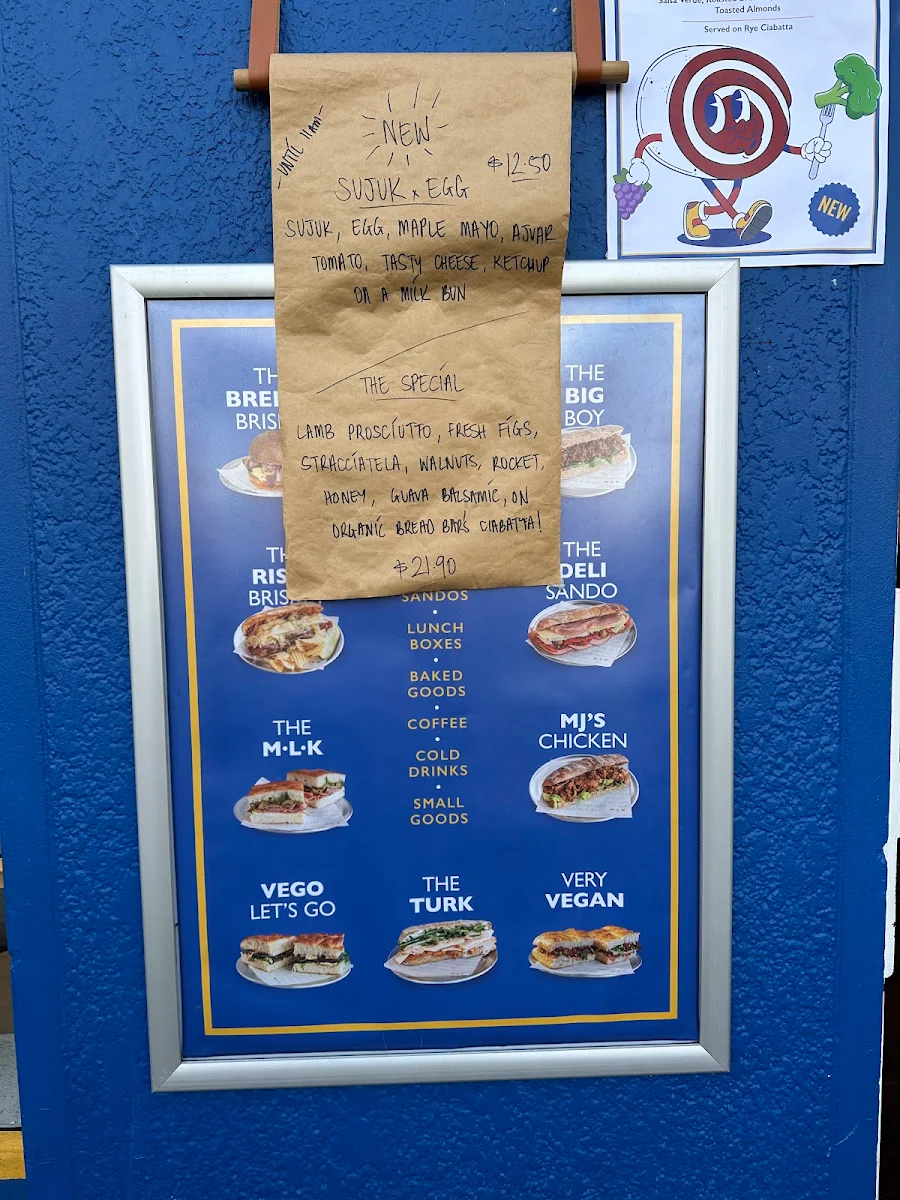 Toasted Almonds
Served on Rye Ciabatta
NEW
-UNTIL 11AM-
NEW
$12.50
SUJUK x EGG
SUJUK, EGG, MAPLE MAYO, AJVAR
TOMATO, TASTY CHEESE, KETCHUP
ON A MILK BUN
THE SPECIAL
LAMB PROSCIUTTO, FRESH FIGS,
STRACCIATELA, WALNUTS, ROCKET,
HONEY, GUAVA BALSAMIC, ON
ORGANIC BREAD BAR'S CIABATTA!
$21.90
THE
BIG
BOY
THE
DELI
SANDO
SANDOS
LUNCH
BOXES
BAKED
GOODS
COFFEE
COLD
DRINKS
SMALL
GOODS
THE
M·L·K
MJ'S
CHICKEN
VEGO
LET'S GO
THE
TURK
VERY
VEGAN